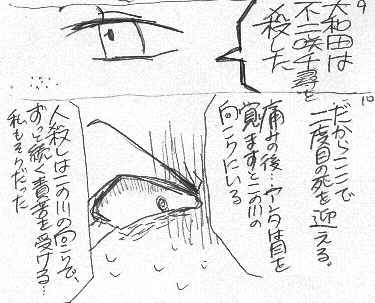 9
大和田は
不二咲千尋を
殺した
10
だからここで
二度目の死を迎える。
痛みの後…アンタは目を
覚ますとこの川の
向こうにいる
人殺しはこの川の向こうで、
ずっと続く責苦を受ける…
私もそうだった